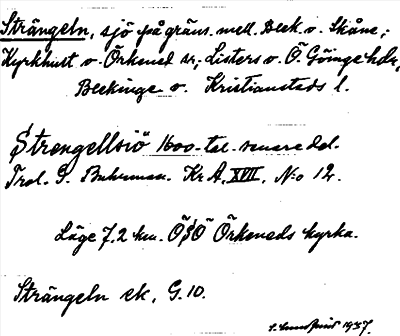 Strängeln, sjö på gräns mell. Blek. o. Skåne;
Kyrkhult o. Örkened sr, Listers o. Ö. Göinge hdr,
Blekinge o. Kristianstads l.
Strengellsiö 1600-tal. senare del.
Trol. P. Buhrman. Kr A, XVII, N:o 12.
Läge 7.2 km. ÖSÖ Örkeneds kyrka.
Strängeln ek, G.10.
1937.